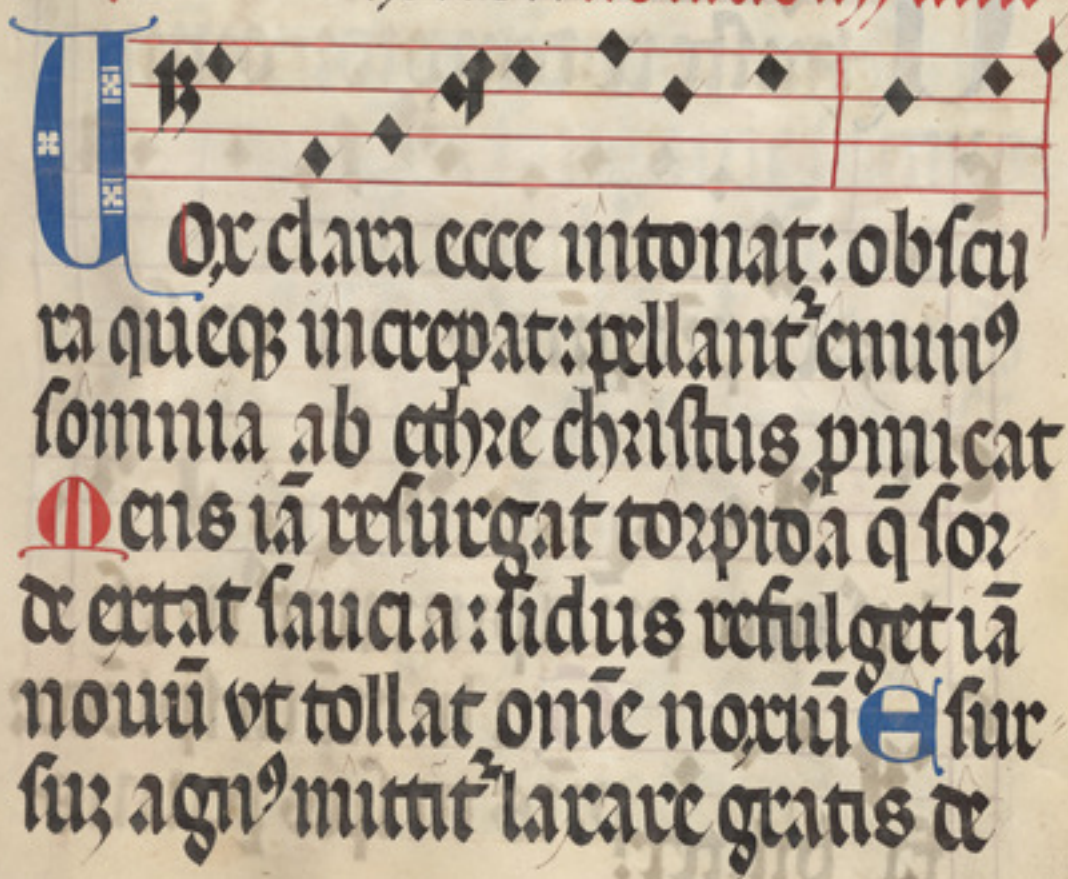 Vox clara ecce intonat: obſcu
ra queqꝫ increpat: pellantᷣ eminꝰ
ſomnia ab ethre chriſtus ꝓmicat
Mens iā reſurgat torpida q̄ ſor
de extat ſaucia: ſidus refulget iā
nouū vt tollat om̄e noxiū E ſur
ſuꝫ agnꝰ mittitᷣ laxare gratis de